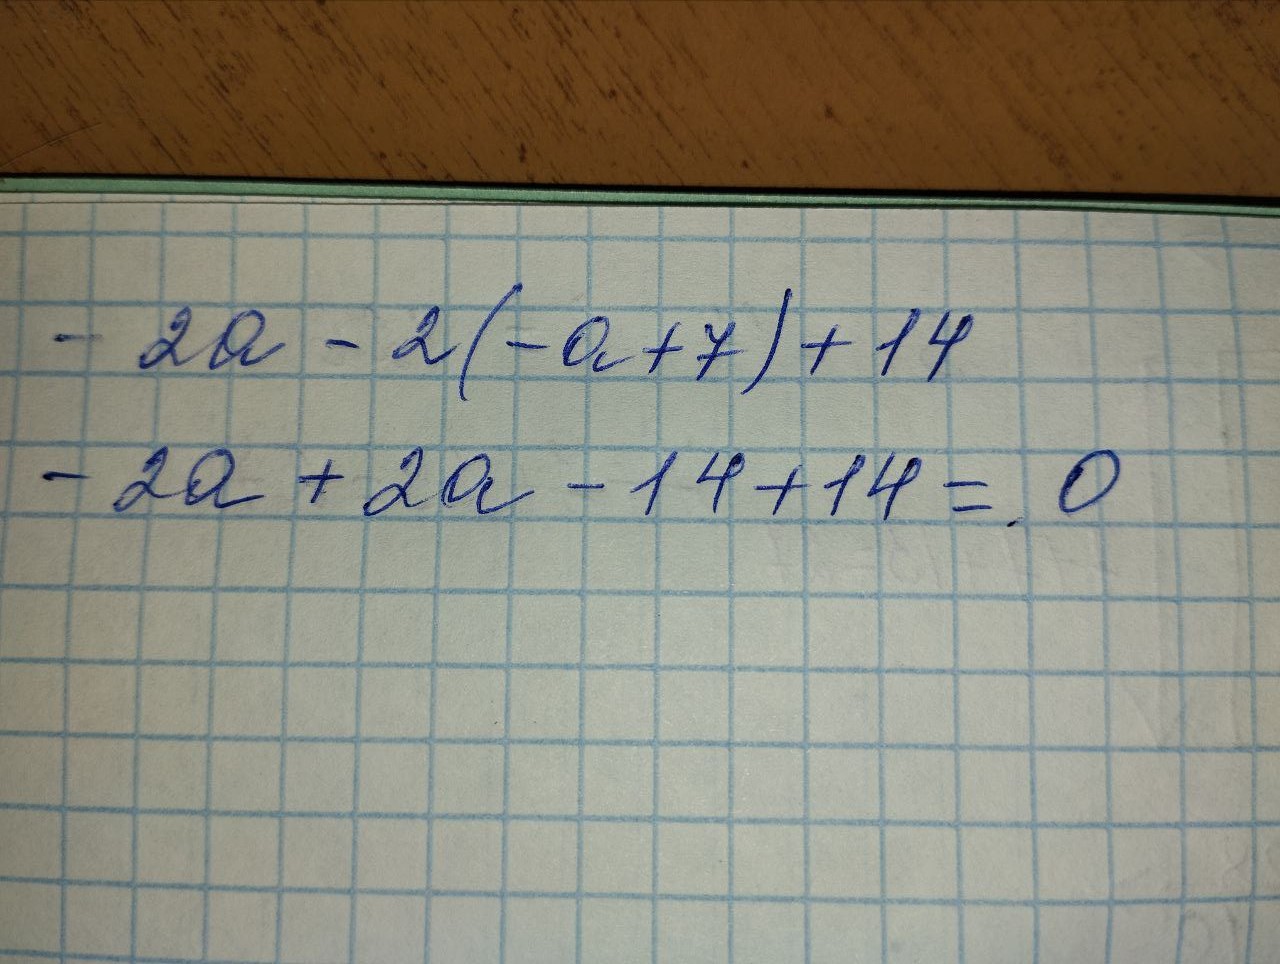 - 2a - 2(-a+7)+14
- 2a + 2a - 14+14 = 0